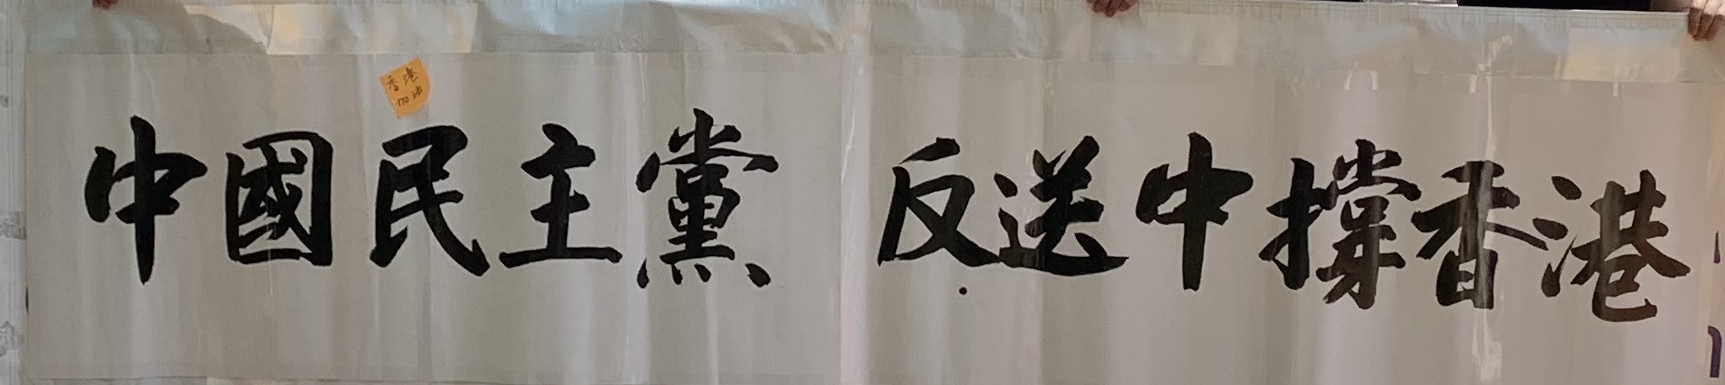 香港
加油
中國民主黨 反送中撐香港